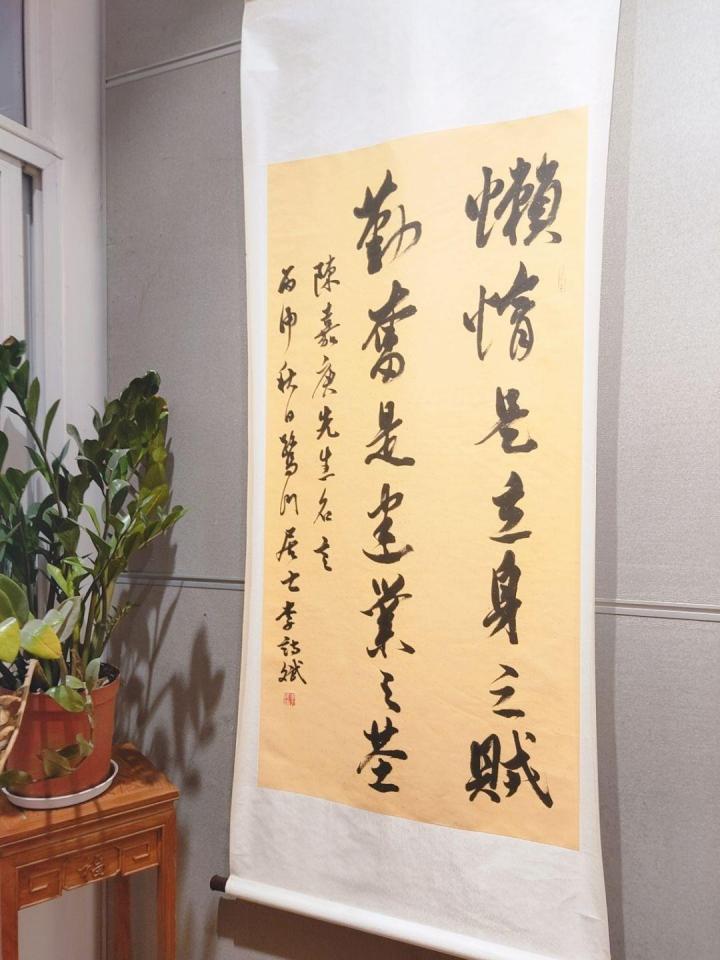 懶惰是立身之賊
勤奮是建業之基
陳嘉庚先生名言
丙申秋日鷺門居士李詩斌